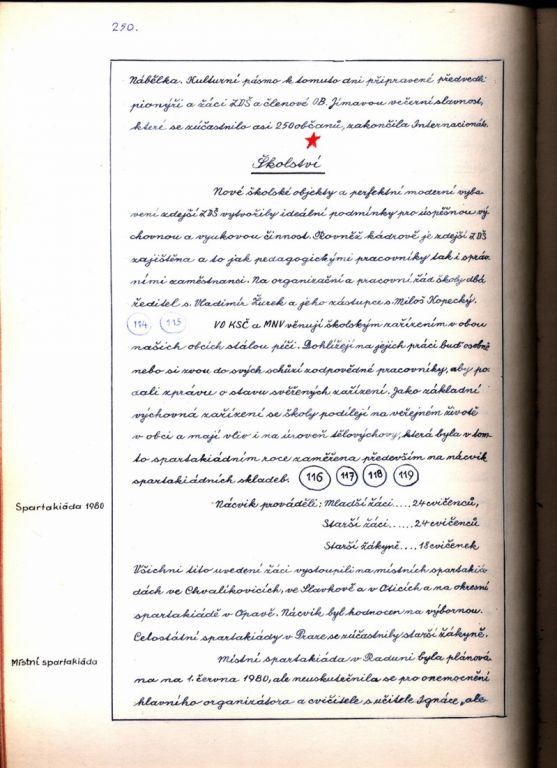 250.
Nábělka. Kulturní pásmo k tomuto dni připravené předvedli
pionýři a žáci ZDŠ a členové OB. Jímavou večerní slavnost,
které se zúčastnilo asi 250 občanů, zakončila Internacionála.
Školství
Nové školské objekty a perfektní moderní vyba-
vení zdejší ZDŠ vytvořily ideální podmínky pro úspěšnou vý
chovnou a vyukovou činnost. Rovněž kádrově je zdejší ZDŠ
zajištěna a to jak pedagogickými pracovníky tak i správ-
ními zaměstnanci. Na organizační a pracovní řád školy dbá
ředitel s. Vladimír Žurek a jeho zástupce s. Miloš Kopecký.
114 115 VO KSČ a MNV věnují školským zařízením v obou
našich obcích stálou péči. Dohlížejí na jejich práci buď osobně
nebo si zvou do svých schůzí zodpovědné pracovníky, aby po-
dali zprávu o stavu svěřených zařízení. Jako základní
výchovná zařízení se školy podílejí na veřejném životě
v obci a mají vliv i na úroveň tělovýchovy, která byla v tom-
to spartakiádním roce zaměřena především na nácvik
spartakiádních skladeb. 116 117 118 119
Spartakiáda 1980
Nácvik prováděli: Mladší žáci.... 24 cvičenců,
Starší žáci..... 24 cvičenců
Starší žákyně.... 18 cvičenek
Všichni tito uvedení žáci vystoupili na místních spartakiá-
dách ve Chvalíkovicích, ve Slavkově a v Oticích a na okresní
spartakiádě v Opavě. Nácvik byl hodnocen na výbornou.
Celostátní spartakiády v Praze se zúčastnily starší žákyně.
Místní spartakiáda
Místní spartakiáda v Raduni byla plánová
na na 1. června 1980, ale neuskutečnila se pro onemocnění
hlavního organizátora a cvičitele s. učitele Ignáce, ale